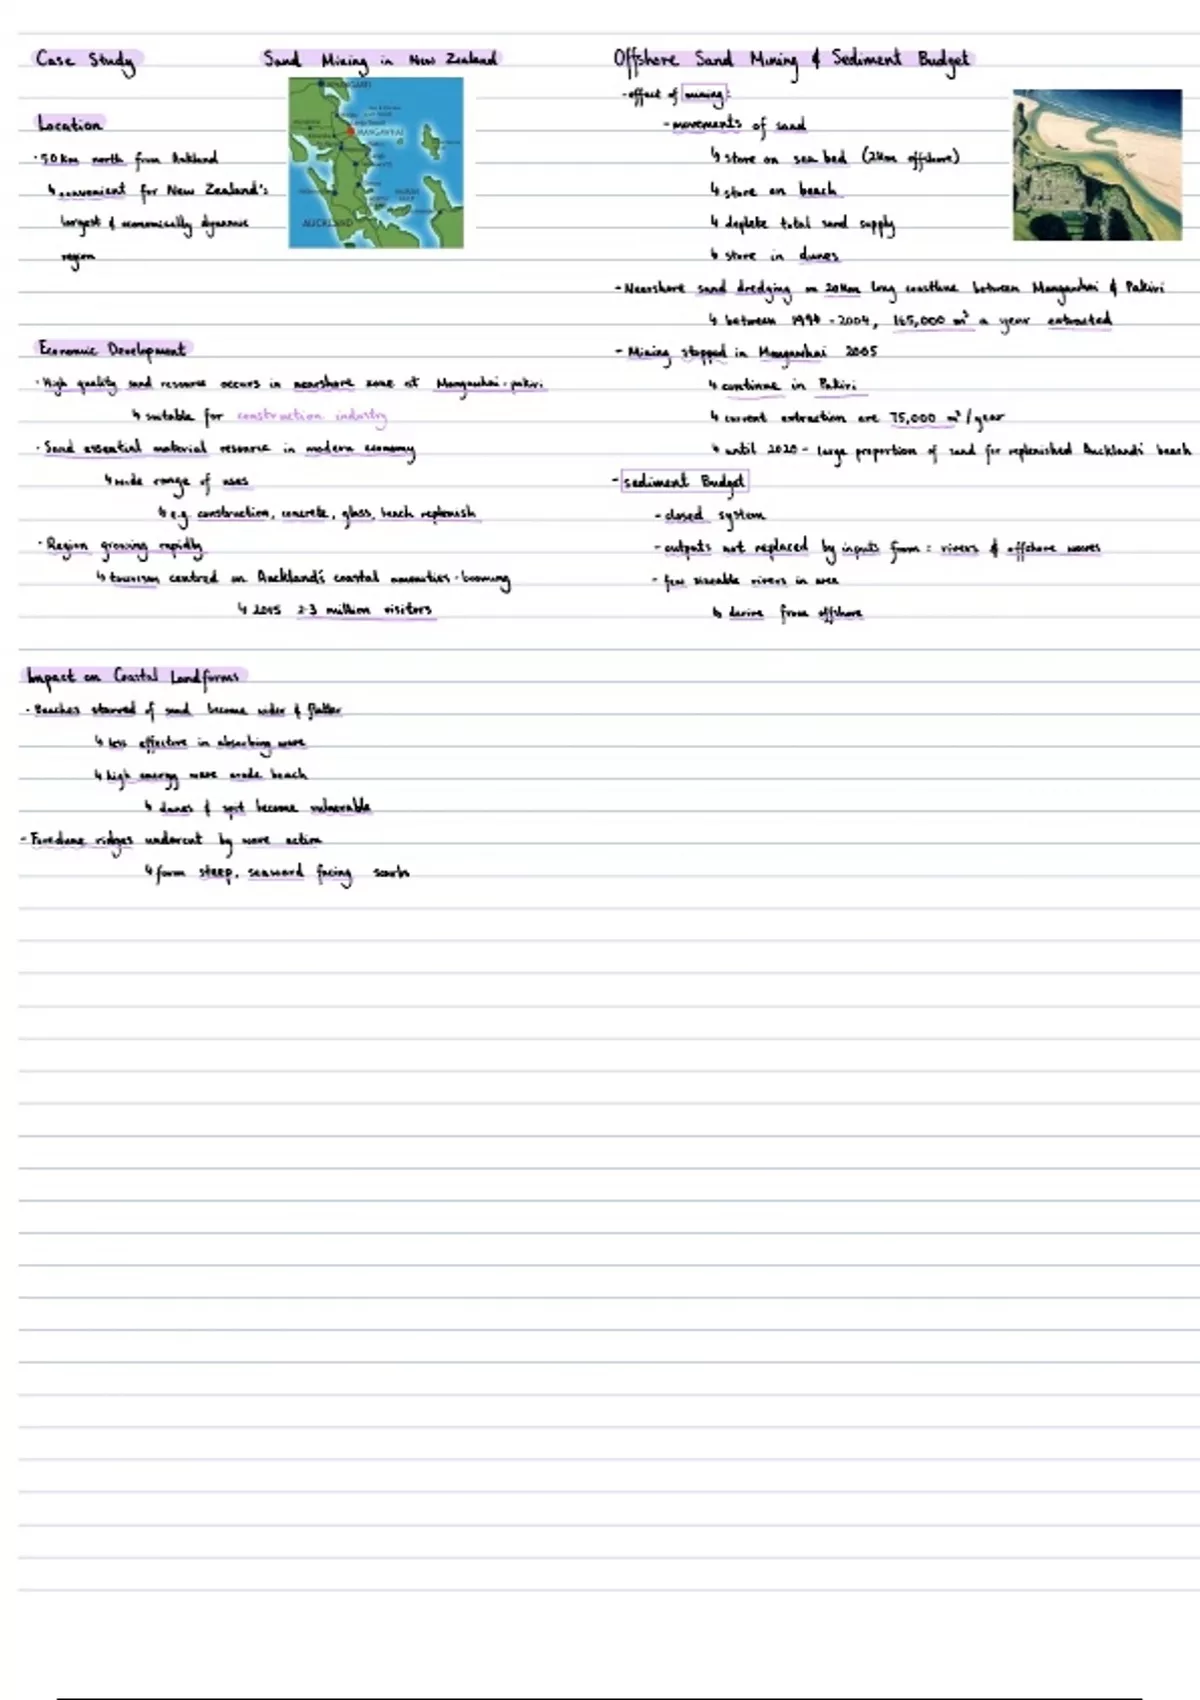 Case Study
Sand Mining in New Zealand
WHANGAREI
MANGAWHAI
AUCKLAND
Location
· 50km north from Aukland
↳ convenient for New Zealand's
largest & economically dynamic
region
Economic Development
· High quality sand resource occurs in nearshore zone at Mangawhai-pakiri
↳ suitable for construction industry
· Sand essential material resource in modern economy
↳ wide range of uses
↳ e.g. construction, concrete, glass, beach replenish
· Region growing rapidly
↳ tourism centred on Auckland's coastal amenities - booming
↳ 2015 2.3 million visitors
Impact on Coastal Landforms
· Beaches starved of sand become wider & flatter
↳ less effective in absorbing wave
↳ high energy wave erode beach
↳ dunes & spit become vulnerable
- Foredune ridges undercut by wave action
↳ form steep, seaward facing scarbs
Offshore Sand Mining & Sediment Budget
- effect of mining:
- movements of sand
↳ store on sea bed (2km offshore)
↳ store on beach
↳ deplete total sand supply
↳ store in dunes
- Nearshore sand dredging on 20km long coastline between Mangawhai & Pakiri
↳ between 1994 - 2004, 165,000 m³ a year extracted
- Mining stopped in Mangawhai 2005
↳ continue in Pakiri
↳ current extraction are 75,000 m³/year
↳ until 2020 - large proportion of sand for replenished Auckland's beach
- sediment Budget
- closed system
- outputs not replaced by inputs from: rivers & offshore waves
- few sizeable rivers in area
↳ derive from offshore